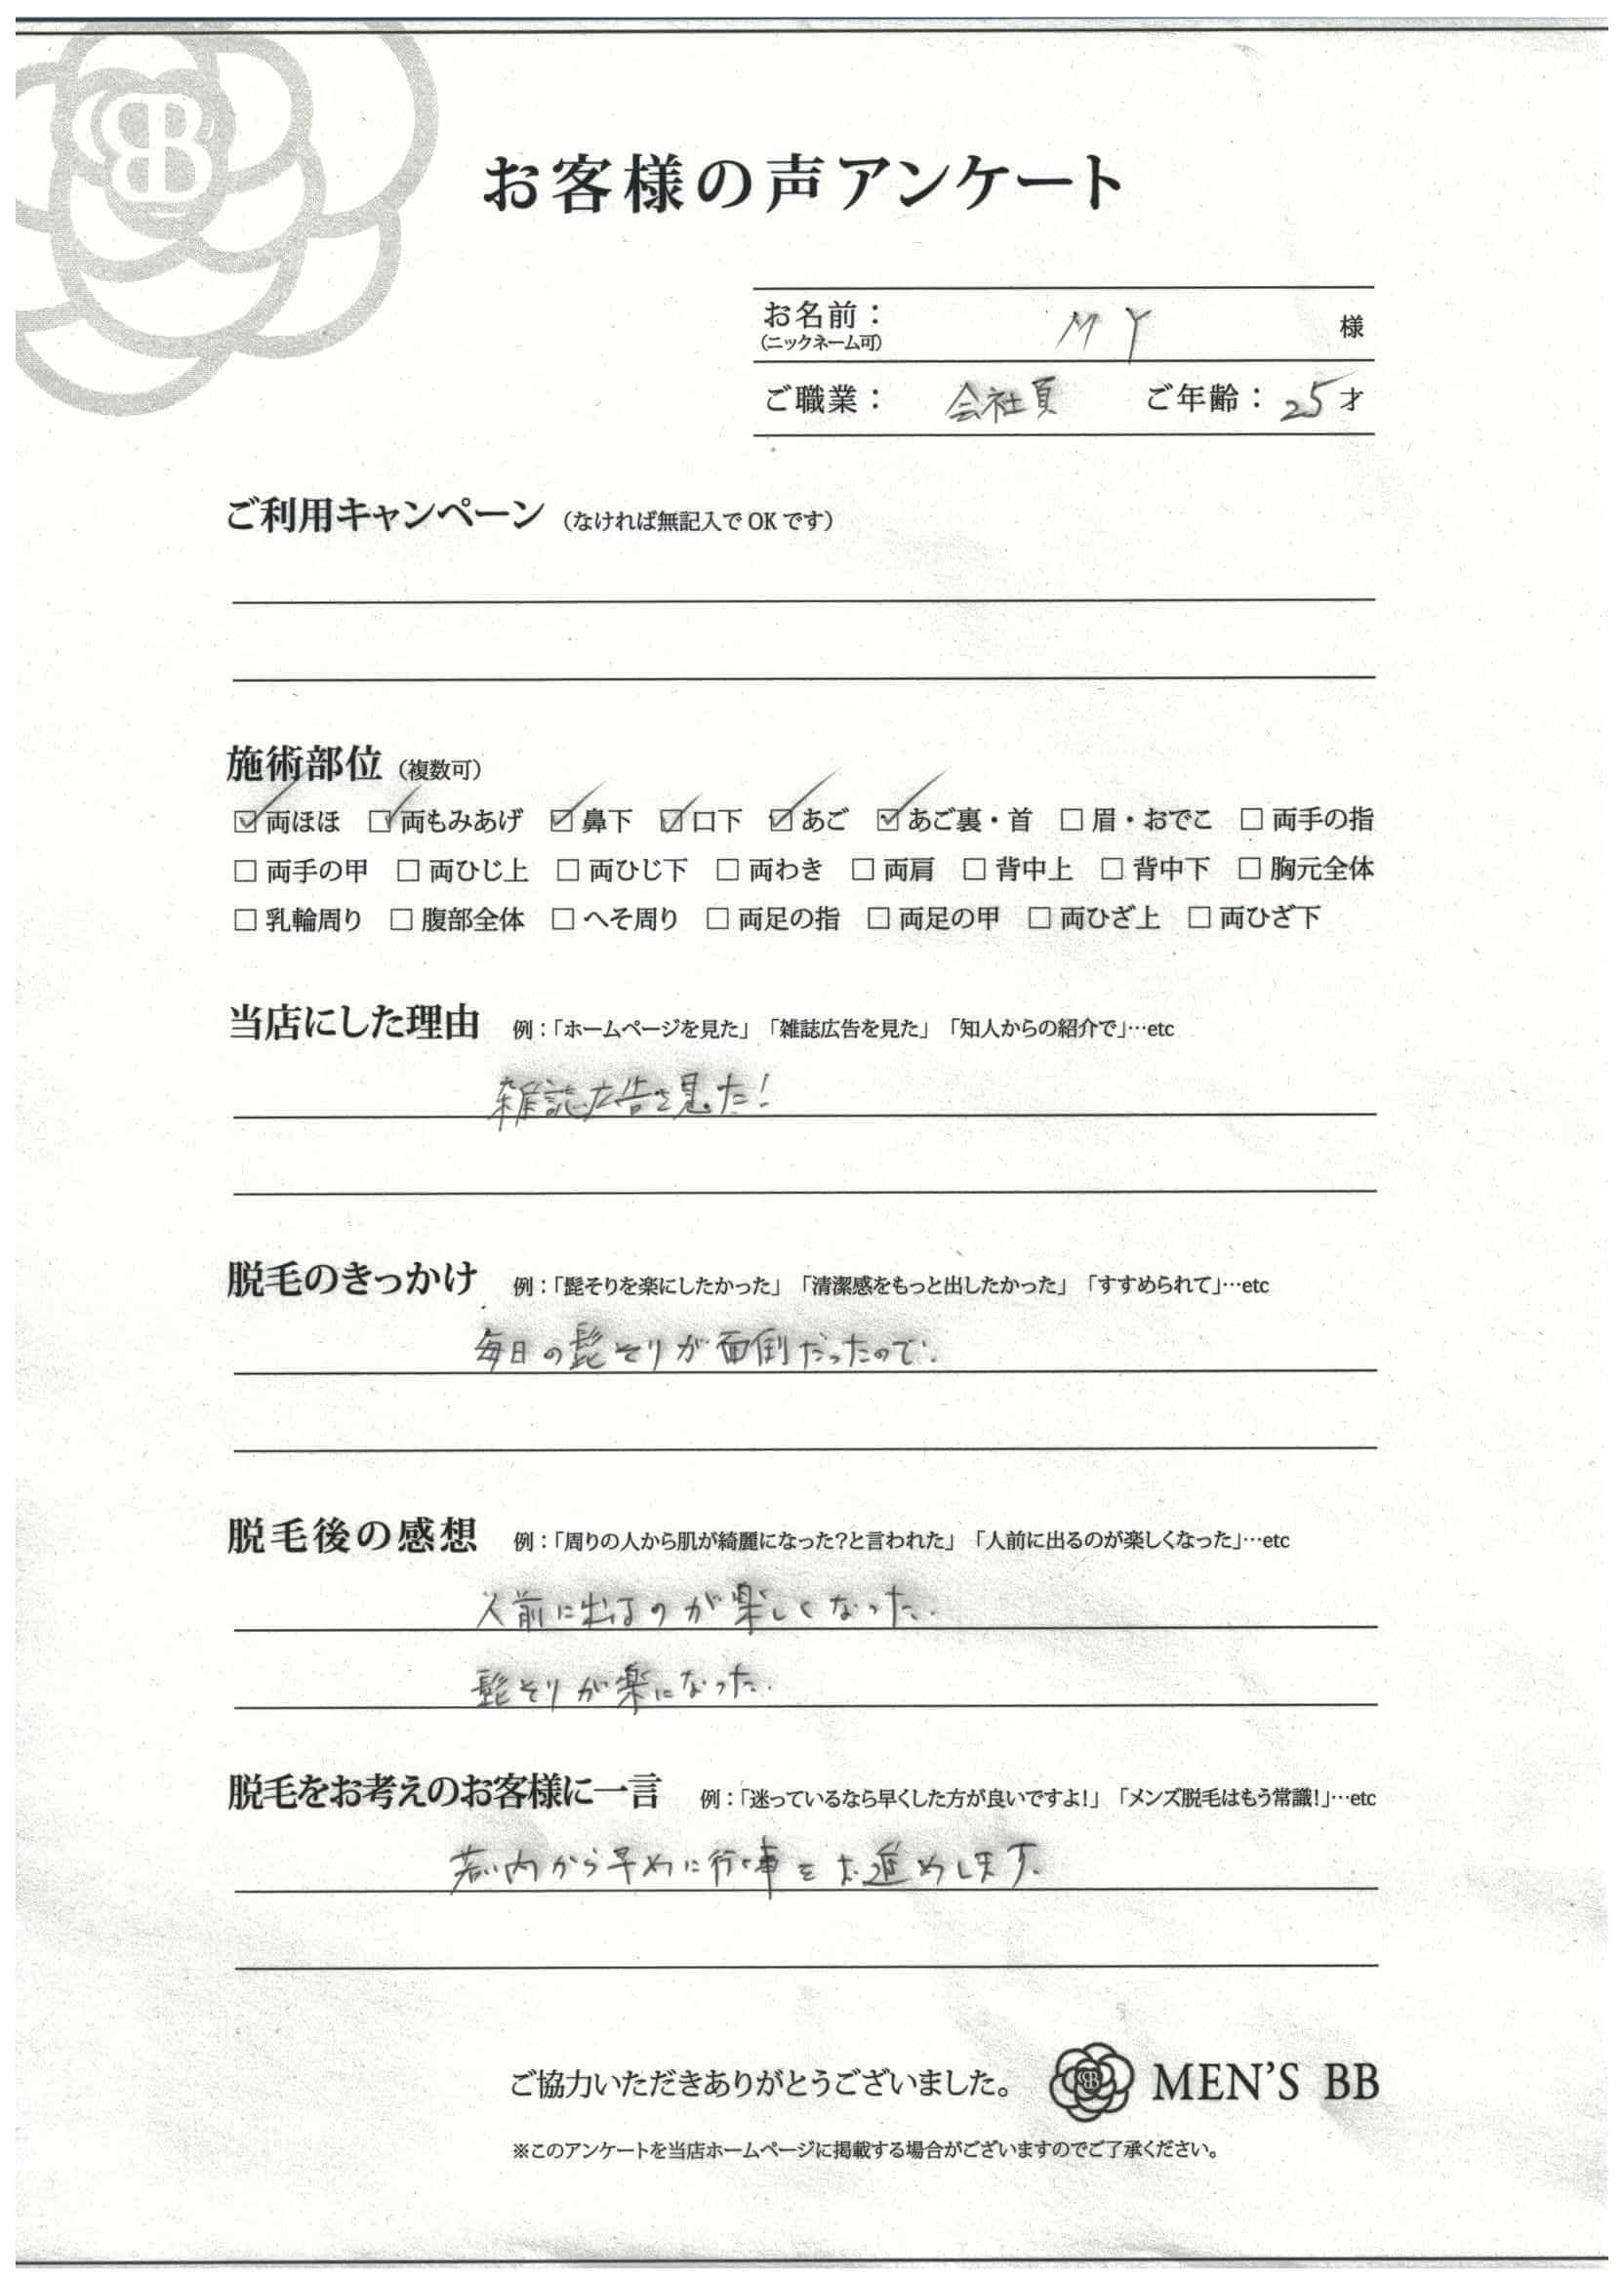 お客様の声アンケート
お名前： MY 様
(ニックネーム可)
ご職業： 会社員 ご年齢： 25才
ご利用キャンペーン （なければ無記入でOKです）
施術部位 （複数可）
☑両ほほ ☑両もみあげ ☑鼻下 ☑口下 ☑あご ☑あご裏・首 □眉・おでこ □両手の指
□両手の甲 □両ひじ上 □両ひじ下 □両わき □両肩 □背中上 □背中下 □胸元全体
□乳輪周り □腹部全体 □へそ周り □両足の指 □両足の甲 □両ひざ上 □両ひざ下
当店にした理由 例：「ホームページを見た」「雑誌広告を見た」「知人からの紹介で」…etc
雑誌広告を見た！
脱毛のきっかけ 例：「髭そりを楽にしたかった」「清潔感をもっと出したかった」「すすめられて」…etc
毎日の髭そりが面倒だったので。
脱毛後の感想 例：「周りの人から肌が綺麗になった?と言われた」「人前に出るのが楽しくなった」…etc
人前に出るのが楽しくなった。
髭そりが楽になった。
脱毛をお考えのお客様に一言 例：「迷っているなら早くした方が良いですよ!」「メンズ脱毛はもう常識!」…etc
若い内から早めに行く事をお進めします。
ご協力いただきありがとうございました。 MEN'S BB
※このアンケートを当店ホームページに掲載する場合がございますのでご了承ください。